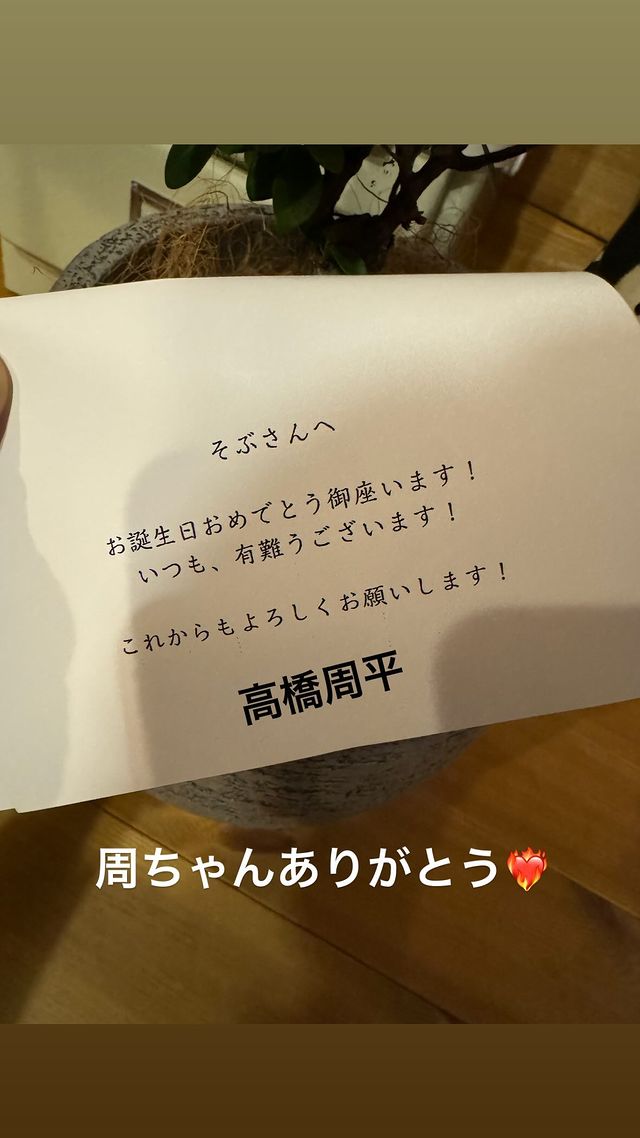 そぶさんへ
お誕生日おめでとう御座います！
いつも、有難うございます！
これからもよろしくお願いします！
高橋周平
周ちゃんありがとう❤️‍🔥